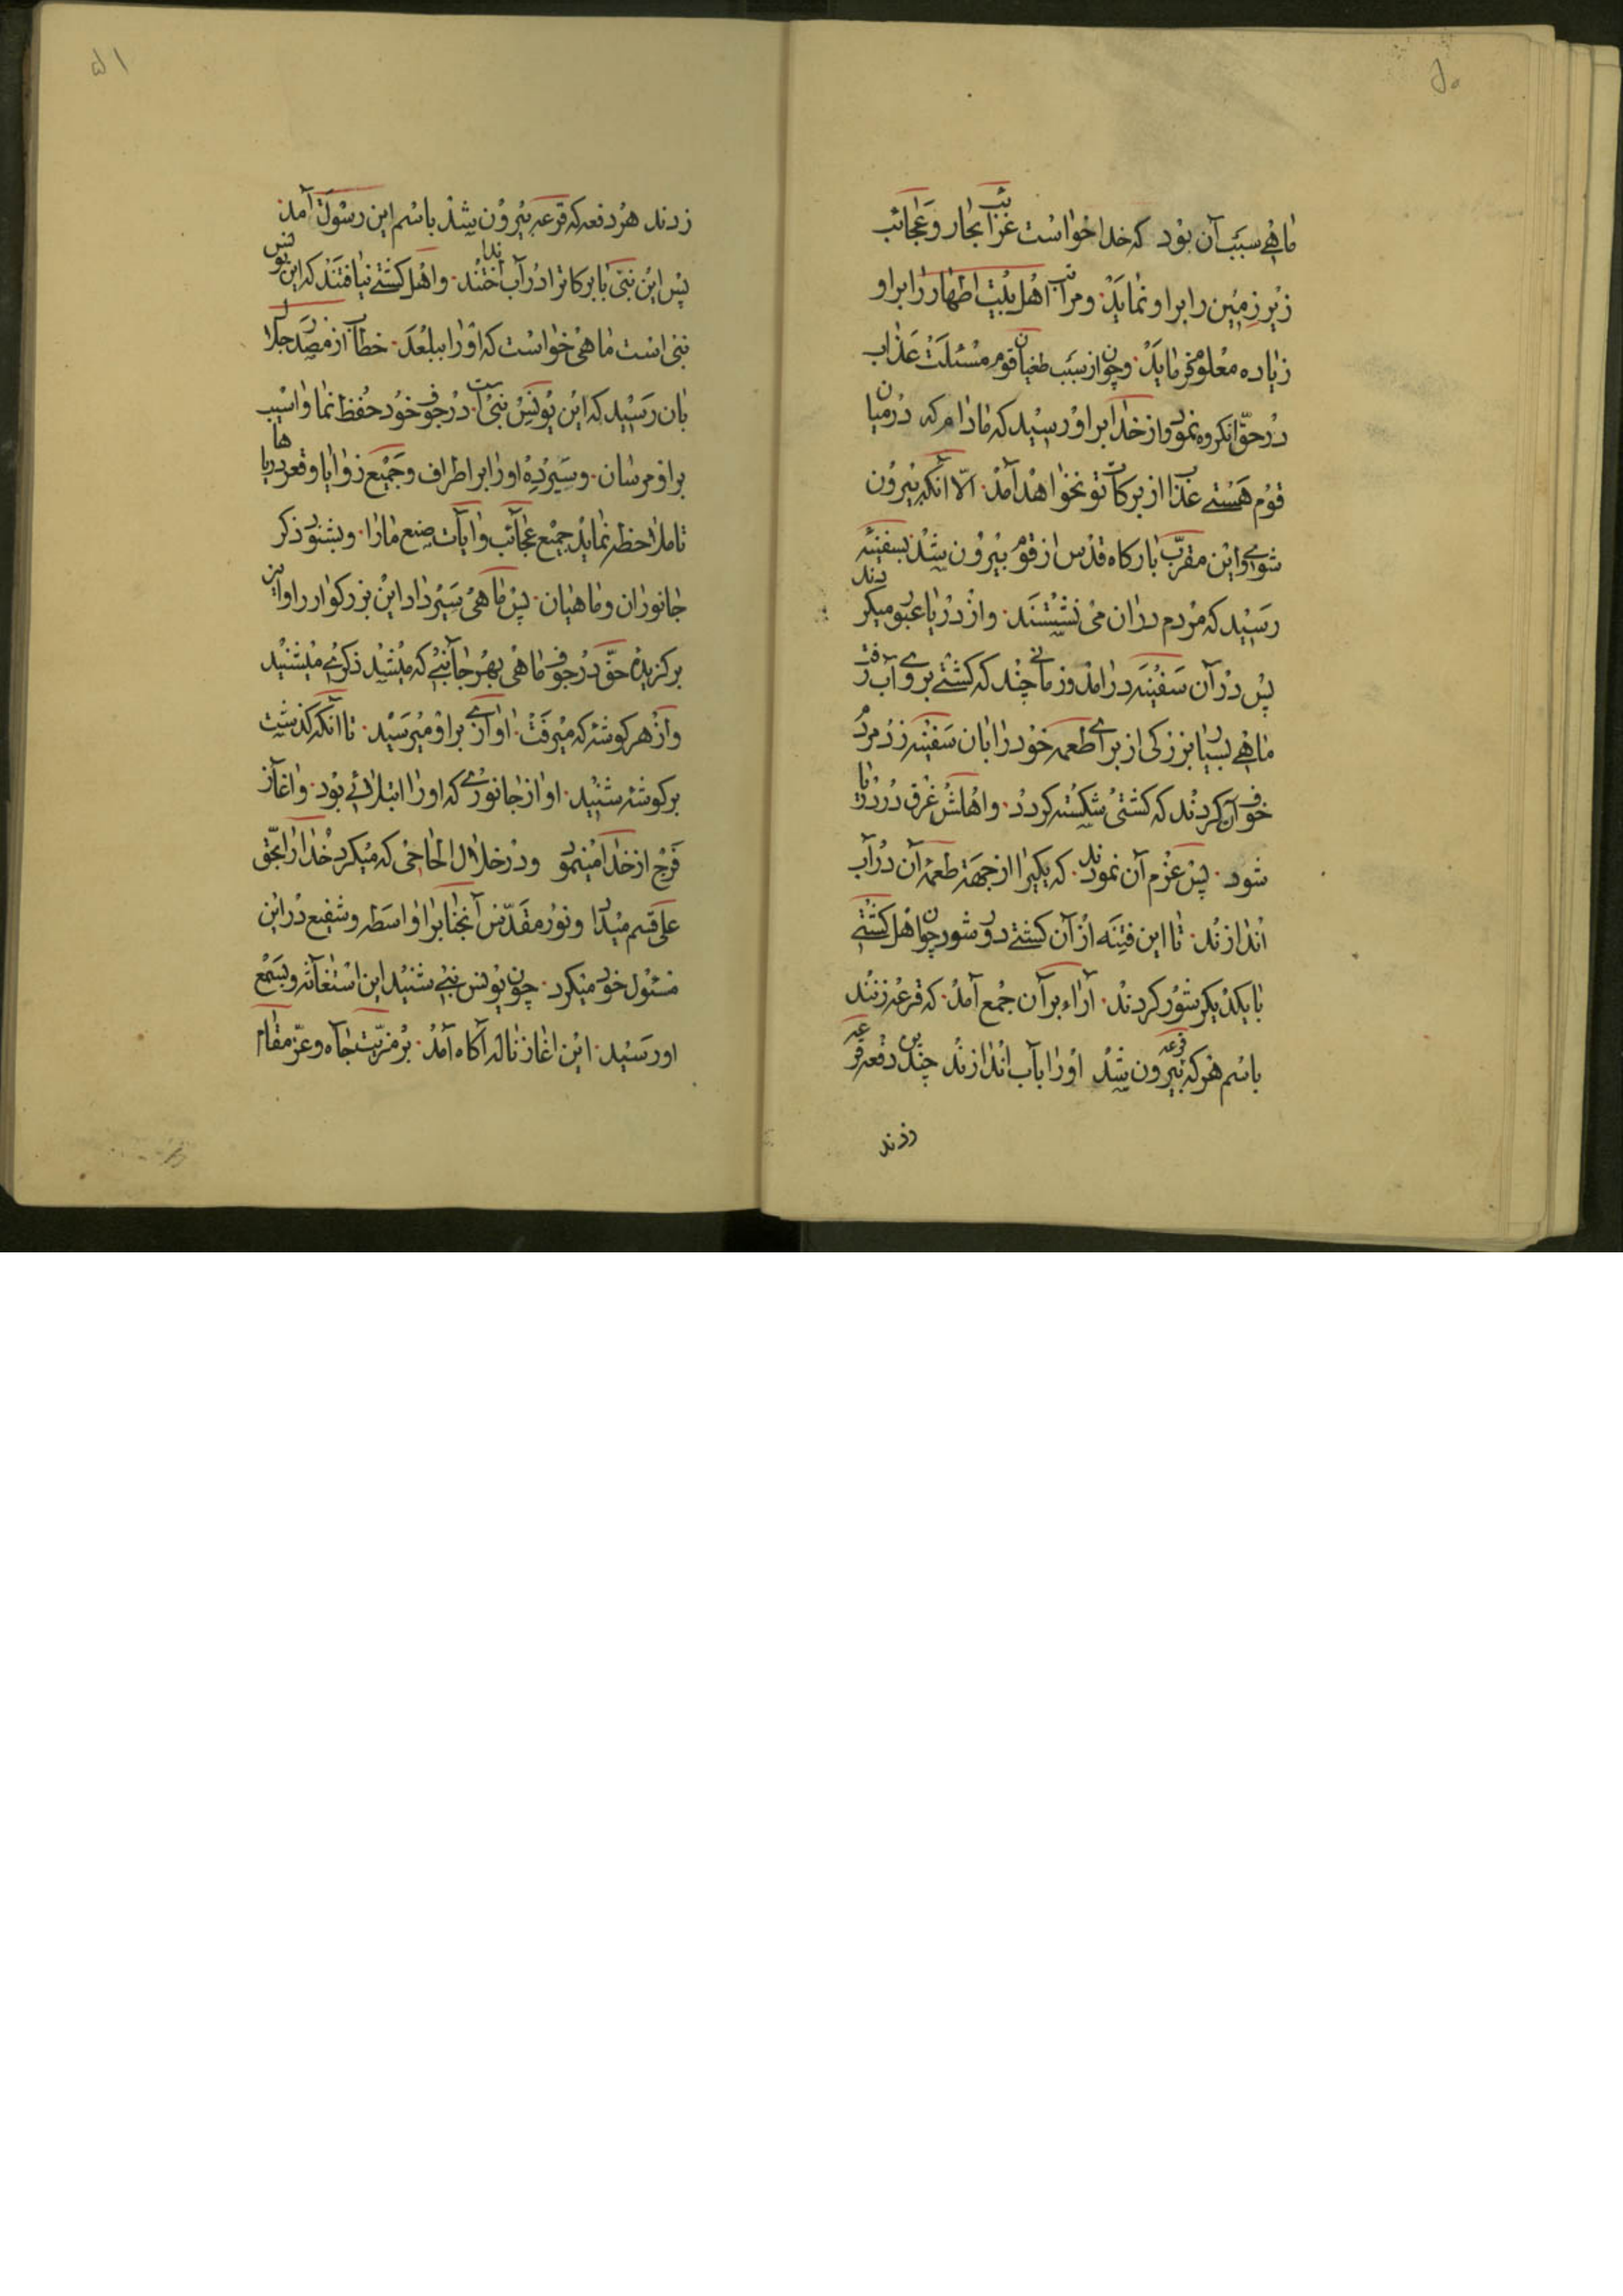 ۵۰
ماهی سبب آن بود که خدا خواست غرائب بحار و عجائب
زیر زمین را بر او نماید. و مراتب اهل بیت اطهار را بر او
زیاده معلوم فرماید. و چون از سبب طغیان قوم مسئلت عذاب
در حق انکروه نمود و از خدا بر او رسید که مادام که در میان
قوم هستی عذاب از برکات تو نخواهد آمد. الا آنکه بیرون
شوی و این مقرب بارکاه قدس از قوم بیرون شد بسفینه
رسید که مردم در ان می نشستند. و از دریا عبور میکردند
پس در آن سفینه در امد و زمانی چند که کشتی بر روی آب رفت
ماهی بسیار بزرکی از برای طعمه خود را بان سفینه زد مردم
خوف آن کردند که کشتی شکسته کردد. و اهلش غرق در دریا
شود. پس عزم آن نمودند. که یکیرا از جهة طعمهٔ آن در آب
اندازند. تا این فتنه از آن کشتی دور شود چون اهل کشتی
با یکدیکر شور کردند. آراء بر آن جمع آمد. که قرعه زنند
باسم هر که قرعه بیرون شد او را بآب اندازند چندین دفعه قرعه
زدند
۵۱
زدند هر دفعه که قرعه بیرون شد باسم این رسول آمد
پس این نبی با برکاترا در آب انداختند. و اهل کشتی نیافتند که این یونس
نبی است ماهی خواست که او را ببلعد. خطاب از مصدر جلال
بان رسید که این یونس نبی است. در جوف خود حفظ نما و اسیب
بر او مرسان. و سیر ده او را بر اطراف و جمیع زوایا و قعر دریاها
تا ملاحظه نماید جمیع عجائب و ایات صنع ما را. و بشنود ذکر
جانوران و ماهیان. پس ماهی سیر داد این بزرکوار را و این
برکزیدهٔ حق در جوف ماهی بهر جانبی که میشد ذکری میشنید
و از هر کوشه که میرفت. اوازی بر او میرسید. تا آنکه کذشت
بر کوشه شنید. اواز جانوری که او را ابتلائی بود. و اغاز
فرج از خدا مینمود و در خلال الحاحی که میکرد خدا را بحق
علی قسم میداد و نور مقدس آنجنابرا واسطه و شفیع در این
مسئول خود میکرد. چون یونس نبی شنید این استغاثه و بسمع
او رسید. این اغاز ناله آکاه آمد. بر مزیت جاه و عز مقام